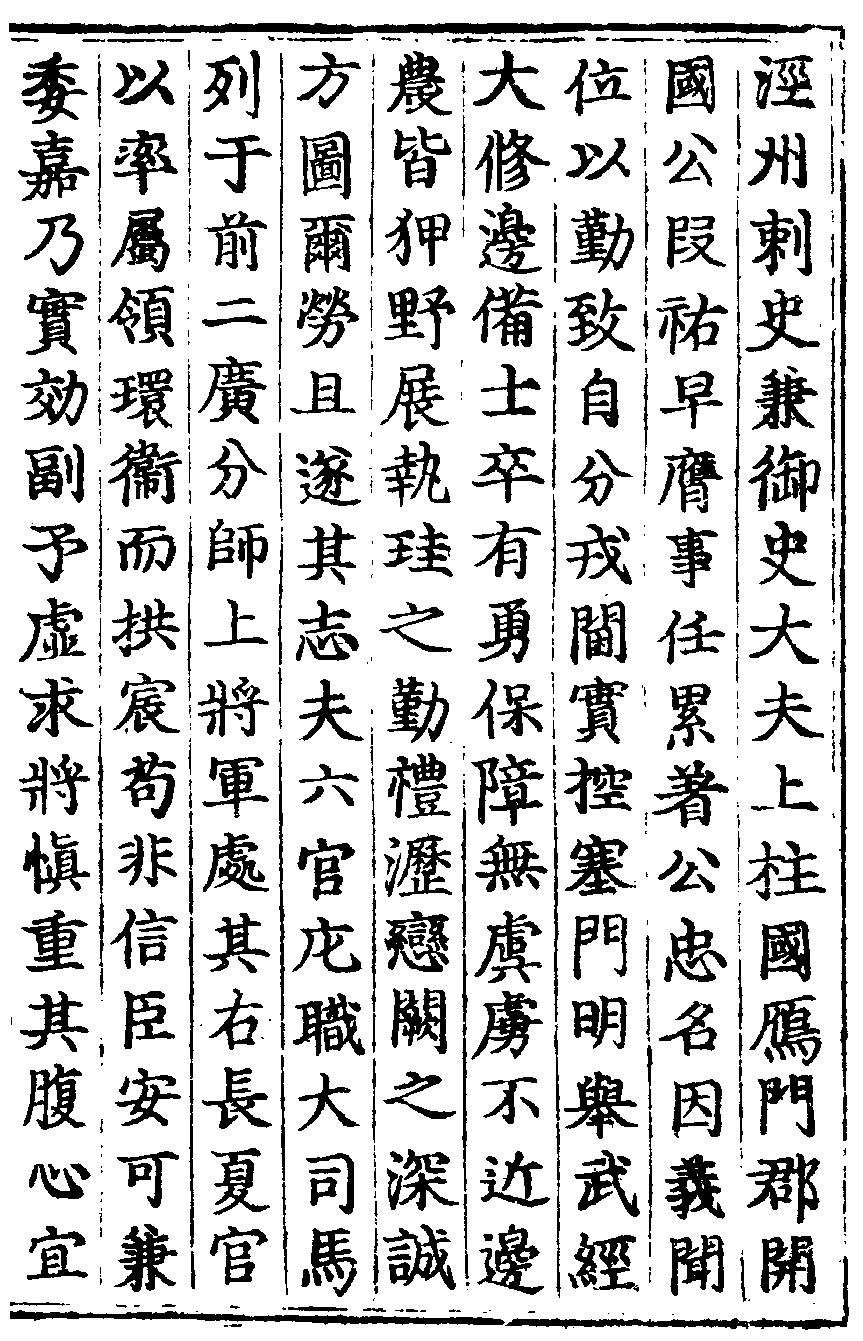 涇州刺史兼御史大夫上柱國鴈門郡開
國公段祐早膺事任累著公忠名因義聞
位以勤致自分戎閫實控塞門明舉武經
大修邊備士卒有勇保障無虞虜不近邊
農皆狎野展執珪之勤禮瀝戀闕之深誠
方圖爾勞且遂其志夫六官庀職大司馬
列于前二廣分師上將軍處其右長夏官
以率屬領環衞而拱宸苟非信臣安可兼
委嘉乃實効副予虛求將愼重其腹心宜